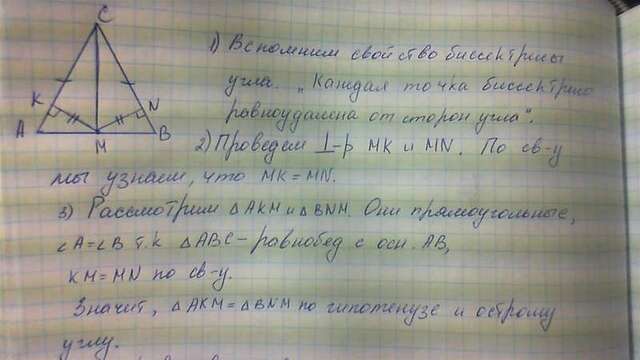 C
K
N
A
M
B
1) Вспомним свойство биссектрисы
угла. „Каждая точка биссектрисы
равноудалена от сторон угла".
2) Проведем ⊥-р MK и MN. По св-у
мы узнаем, что MK = MN.
3) Рассмотрим △AKM и △BNM. Они прямоугольные,
∠A=∠B т.к △ABC – равнобед с осн. AB,
KM=MN по св-у.
Значит, △AKM=△BNM по гипотенузе и острому
углу.